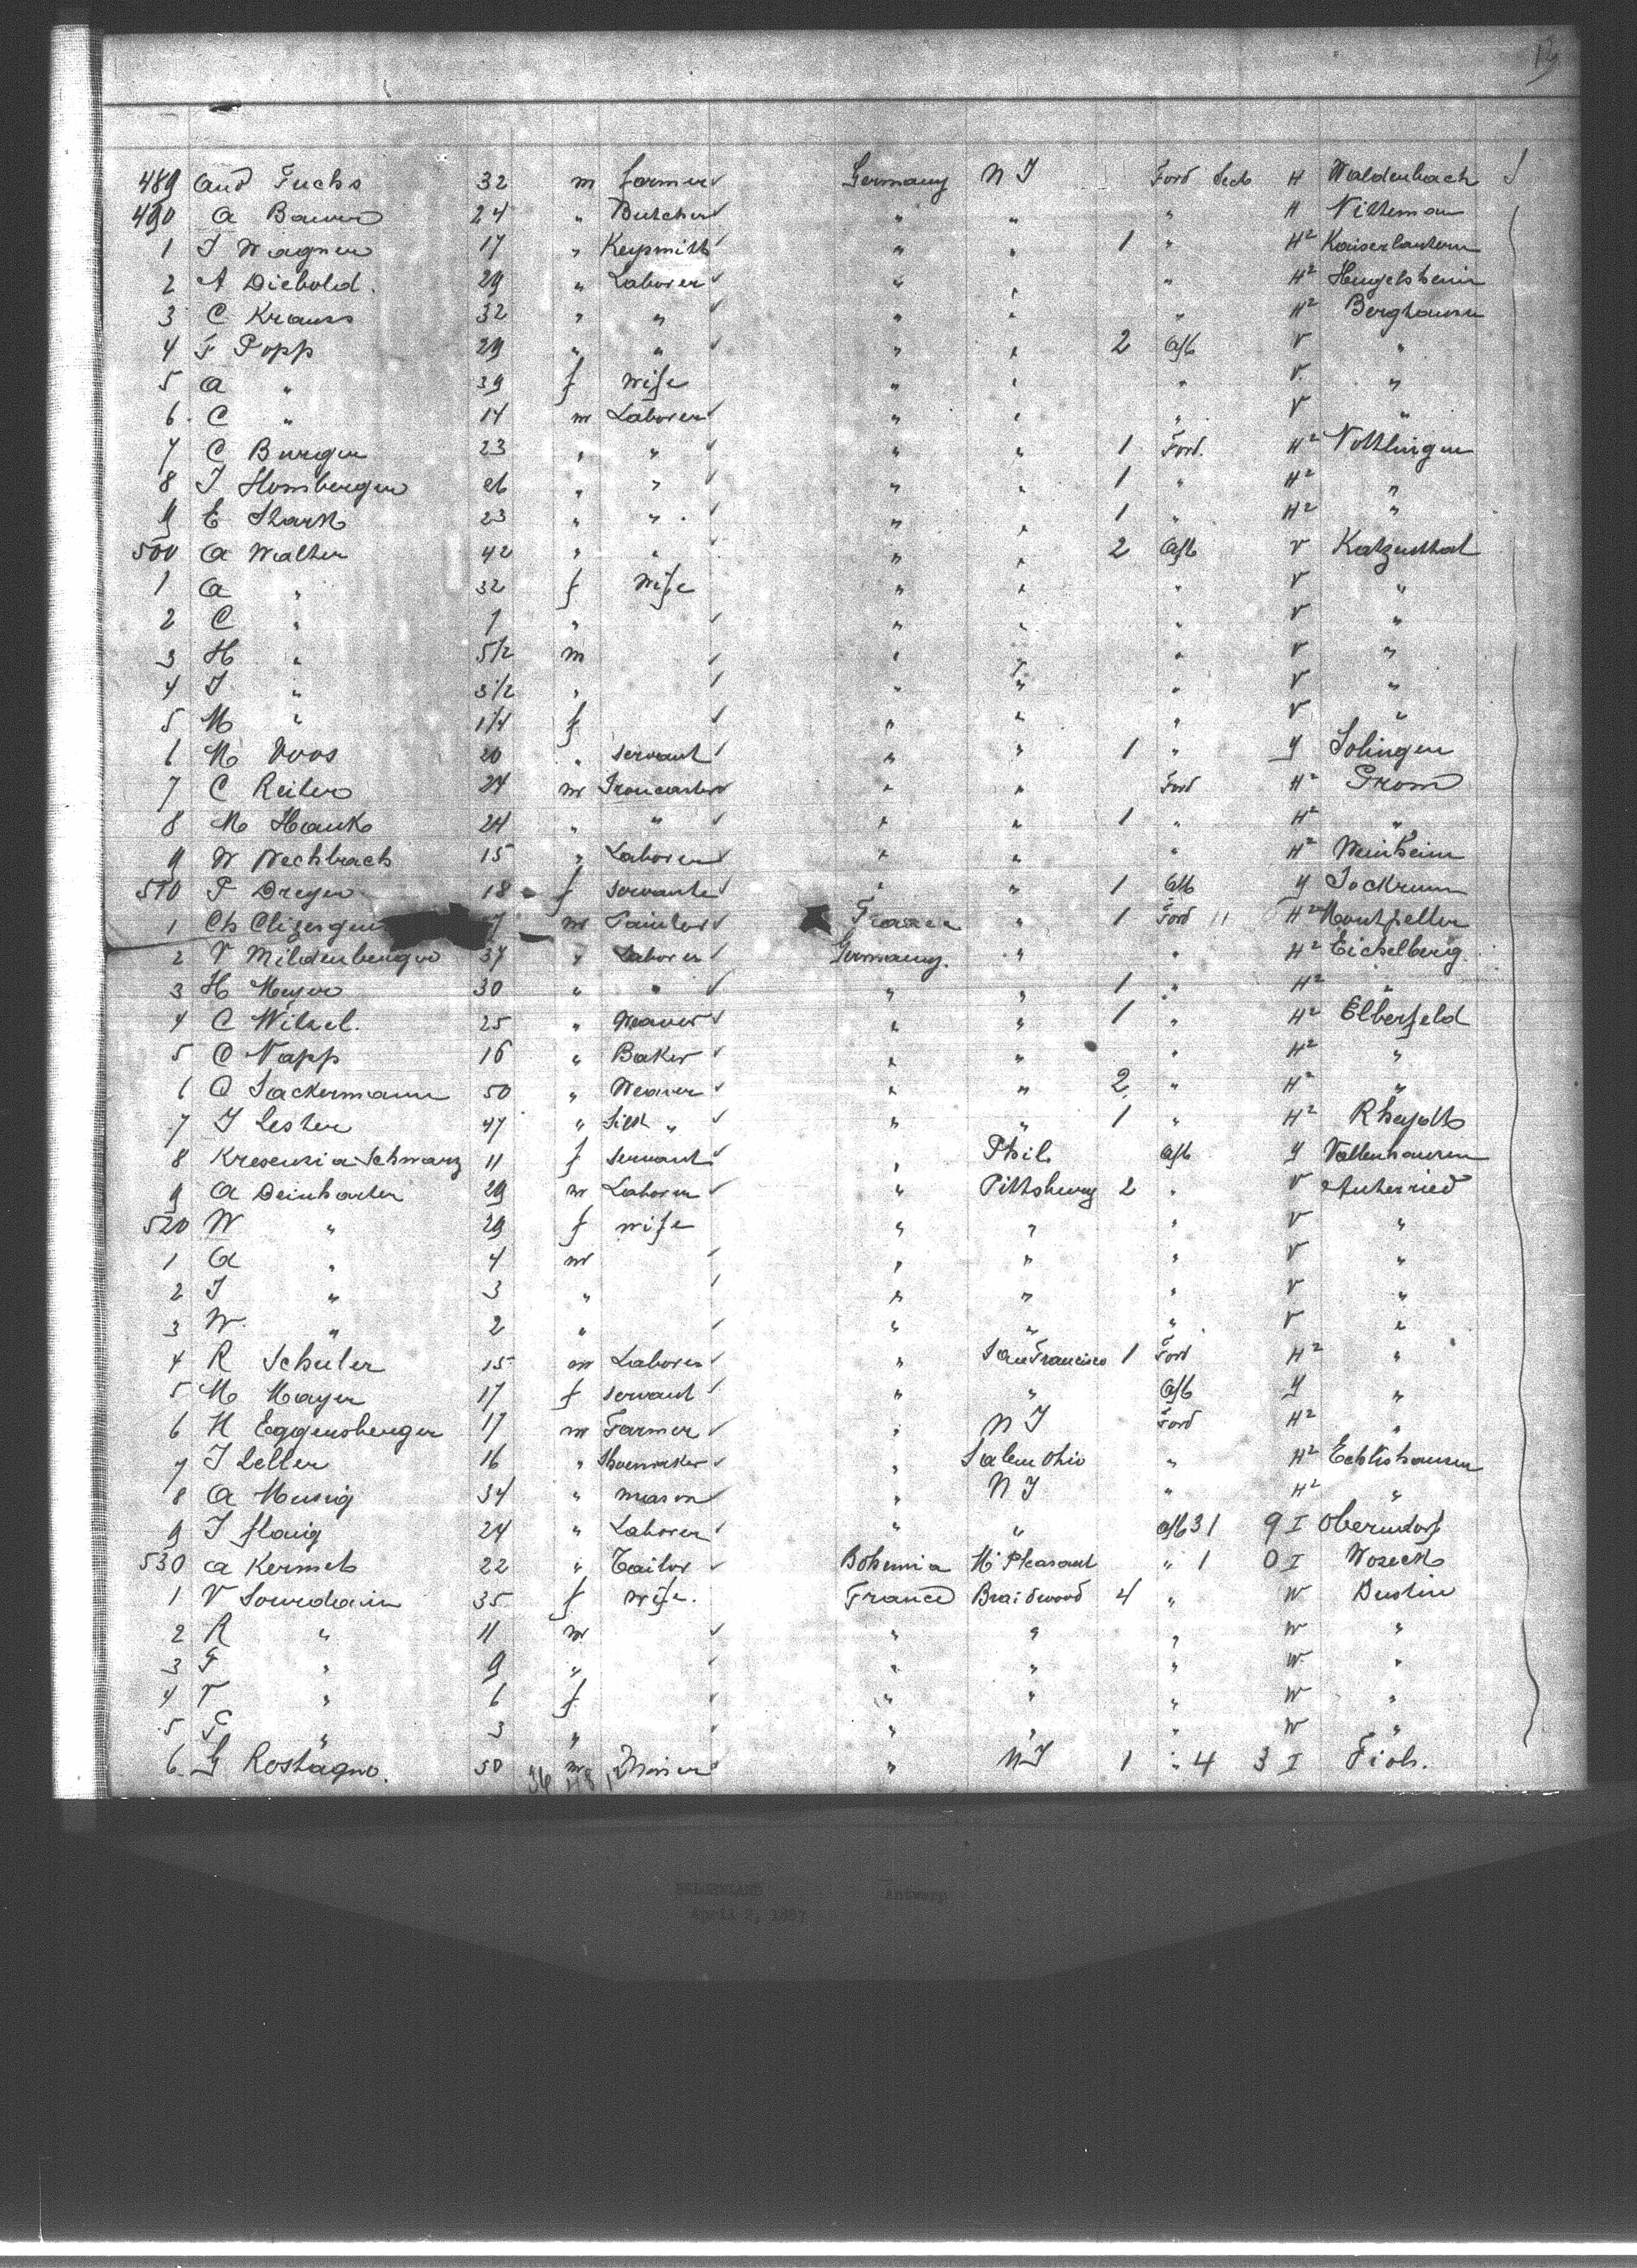 12
489 And Fuchs 32 m farmer Germany N J Ford Deck H Waldenbach
490 A Bauer 24 " Butcher " " " H
1 J Wagner 17 " Keysmith " " 1 " H² Kaiserlautern
2 A Diebold. 29 " Laborer " " " H²
3 C Krauss 32 " " " " " H² Berghausen
4 F Popp 29 " " " " 2 Aft V "
5 A " 39 f wife " " " V "
6 C " 14 m Laborer " " " V "
7 C Burger 23 " " " " 1 Ford. H²
8 J Homberger 26 " " " " 1 " H² "
9 E Stark 23 " " " " 1 " H² "
500 A Walter 42 " " " " 2 Aft V Katzenthal
1 A " 32 f Wife " " " V "
2 C " 7 " " " " V "
3 H " 5½ m " " " V "
4 J " 3½ " " " " V "
5 M " 1/4 f " " " V "
6 M Voos 20 " servant " " 1 " Y Solingen
7 C Reiter 24 m " " Ford H² Prom
8 M Hauk 24 " " " " 1 " H² "
9 W Wechbach 15 " Laborer " " " H² Weinheim
510 P Dreyer 18 f servant " " 1 Aft Y
1 Ch 7 m Painter France " 1 Ford 11 H² Montpellier
2 V Mildenberger 37 " Laborer Germany. " " H² Eichelberg.
3 H Meyer 30 " " " " 1 " H² "
4 C Witzel. 25 " Weaver " " 1 " H² Elberfeld
5 O Napp 16 " Baker " " " H² "
6 O Sackermann 50 " Weaver " " 2 " H² "
7 J Lester 47 " Silk " " " 1 " H² Rheydt
8 Kresenzia Schwarz 11 f servant " Phil. Aft Y
9 A Deinharter 29 m Laborer " Pittsburg 2 " V
520 W " 29 f wife " " " V "
1 A " 4 m " " " V "
2 J " 3 " " " " V "
3 W. " 2 " " " " V "
4 R Schuler 15 m Laborer " San Francisco 1 Ford H² "
5 M Mayer 17 f servant " " Aft Y "
6 H Eggensberger 17 m Farmer " N J Ford H² "
7 J Leller 16 " Shoemaker " Salem Ohio " H²
8 A Mussig 34 " mason " N J " H² "
9 J flaig 24 " Laborer " " Aft 31 9 I Oberndorf
530 A Kermet 22 " Tailor Bohemia Mt Pleasant " 1 0 I Woseck
1 V Sourdain 35 f wife. France Braidwood 4 " W
2 A " 11 m " " " W "
3 F " 9 " " " " W. "
4 V " 6 f " " " W "
5 F " 3 " " " " W "
6 G Rostagno. 50 m Miner " N J 1 " 4 3 I
Antwerp
April 2, 1887